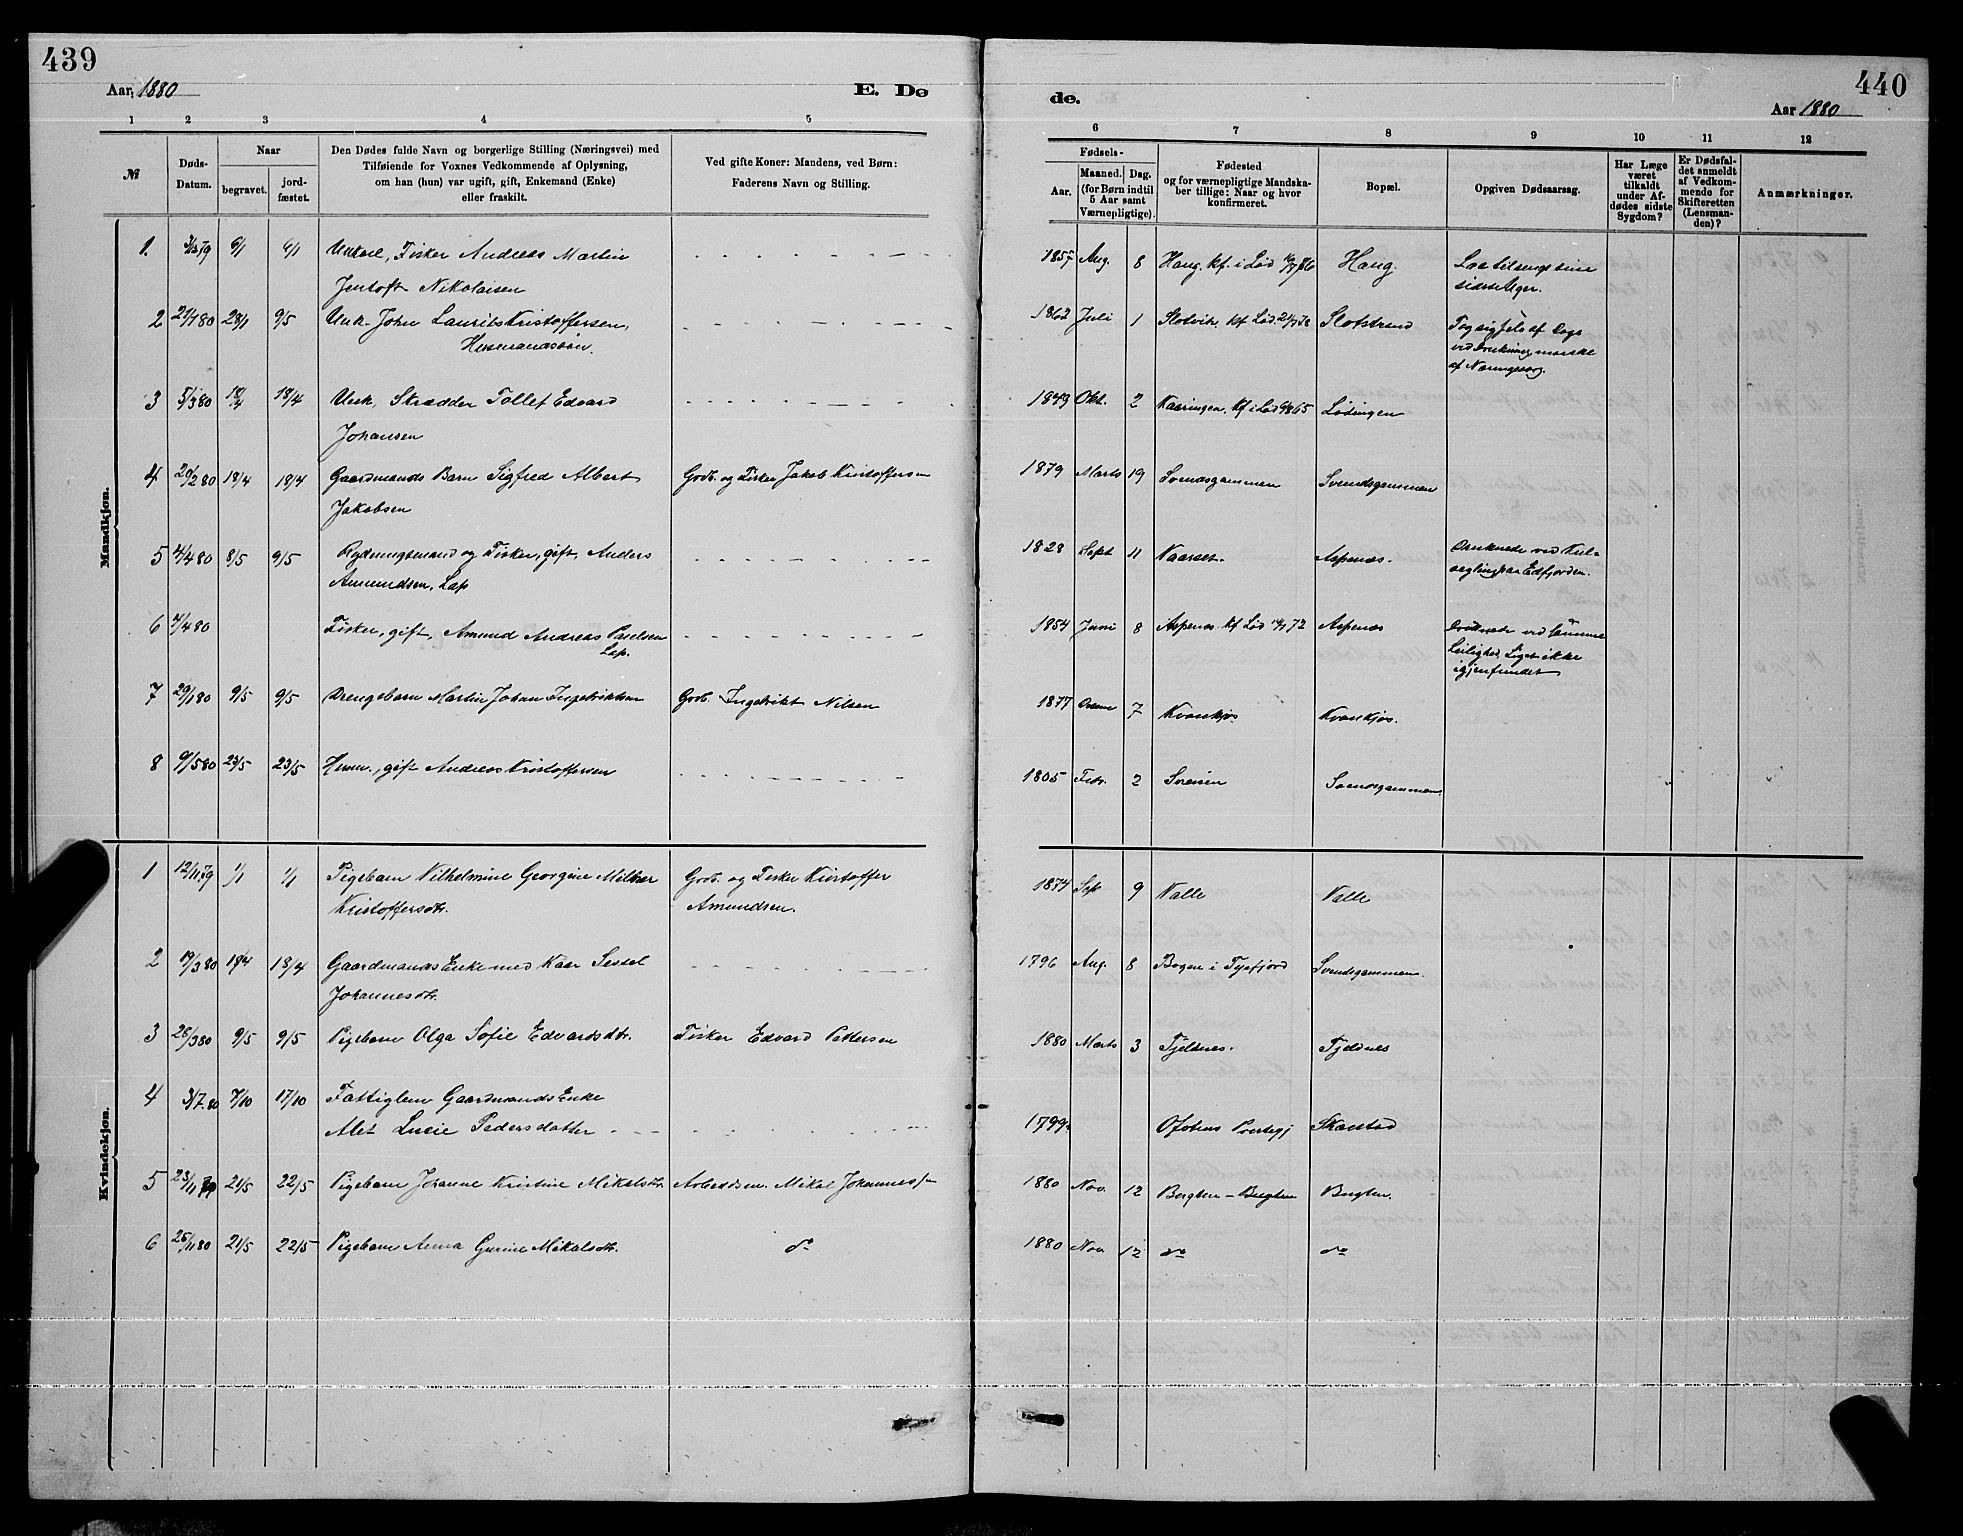 439
Aar 1880
E. Dø
1 2 3 4 5
№
Døds-
Datum.
Naar
begravet.
jord-
fæstet.
Den Dødes fulde Navn og borgerlige Stilling (Næringsvei) med
Tilføiende for Voxnes Vedkommende af Oplysning,
om han (hun) var ugift, gift, Enkemand (Enke)
eller fraskilt.
Ved gifte Koner: Mandens, ved Børn:
Faderens Navn og Stilling.
Mandkjøn.
1. 6/1 Fisker Andreas Martin
Jentoft Nikolaisen
2 28/1 9/5 John Laurits Kristoffersen,
Husmandssøn.
3 5/3 80 18/4 18/4 Skrædder Tollef Edvard
Johansen
4 20/2 80 18/4 18/4 Gaardmands Barn Sigfred Albert Grdb. og Fisker Jakob Kristoffersen
Jakobsen
5 4/4 80 8/5 9/5 Rydningsmand og Fisker, gift, Anders
Amundsen, Lap
6 4/4 80 Fisker, gift, Amund Andreas Paulsen
Lap.
7 29/1 80 9/5 9/5 Drengebarn Martin Johan Ingebriktsen Grdb. Ingebrikt Nilsen
8 9/5 80 23/5 23/5 gift Andreas Kristoffersen
Kvindekjøn.
1 12/11 79 1/1 1/1 Pigebarn Vilhelmine Georgine Grdb. og Fisker Kristoffer
Kristoffersdtr. Amundsen.
2 19/3 80 18/4 18/4 Gaardmands Enke med Kaar Sessel
Johannesdtr.
3 26/3 80 9/5 9/5 Pigebarn Olga Sofie Edvardsdtr. Fisker Edvard Pettersen
4 3/7 80 7/10 17/10 Fattiglem Gaardmands Enke
Alet Lucie Pedersdatter
5 23/11 21/5 22/5 Pigebarn Johanne Kristine Mikalsdtr. Arbeidsm. Mikal Johannes/n
6 25/11 80 21/5 22/5 Pigebarn Anna Gurine Mikalsdtr. do
440
de.
Aar 1880
6 7 8 9 10 11 12
Fødsels-
Aar.
Maaned. Dag.
(for Børn indtil
5 Aar samt
Værnepligtige).
Fødested
og for værnepligtige Mandska-
ber tillige: Naar og hvor
konfirmeret.
Bopæl.
Opgiven Dødsaarsag.
Har Læge
været
tilkaldt
under Af-
dødes sidste
Sygdom?
Er Dødsfal-
det anmeldt
af Vedkom-
mende for
Skifteretten
(Lensman-
den)?
Anmærkninger.
1857 Aug. 8 Haug, kf. i Lød Haug. Laa tilsengs sine
sidste Uger.
1862 Juli 1 Slotvik, kf. Lød. Slotstrand Tog sig selv af Dage
ved Drukning maaske
af Næringssorg.
1849 Okt. 2 Kaaringen, kf i Lød 65 Lødingen
1879 Marts 19 Svendsgammen Svendsgammen
1828 Sept 11 Kaarset. Aspenæs. Druknede ved Kul-
segling paa Edfjorden.
1854 Juni 8 Aspenæs. kf Lød 72 Aspenæs Druknede ved samme
Leilighed. Liget ikke
igjenfundet
1877 7 Kvankjos Kvankjos.
1805 Febr. 2 Svensgammen.
1874 Sep 9 Valle Valle
1796 Aug. 8 Bogen i Tysfjord Svendsgammen.
1880 Marts 3 Fjeldnes. Fjeldnes
1799. Ofotens Prestegj Skarstad
1880 Nov. 12 Bugten.
1880 Nov. 12 do do